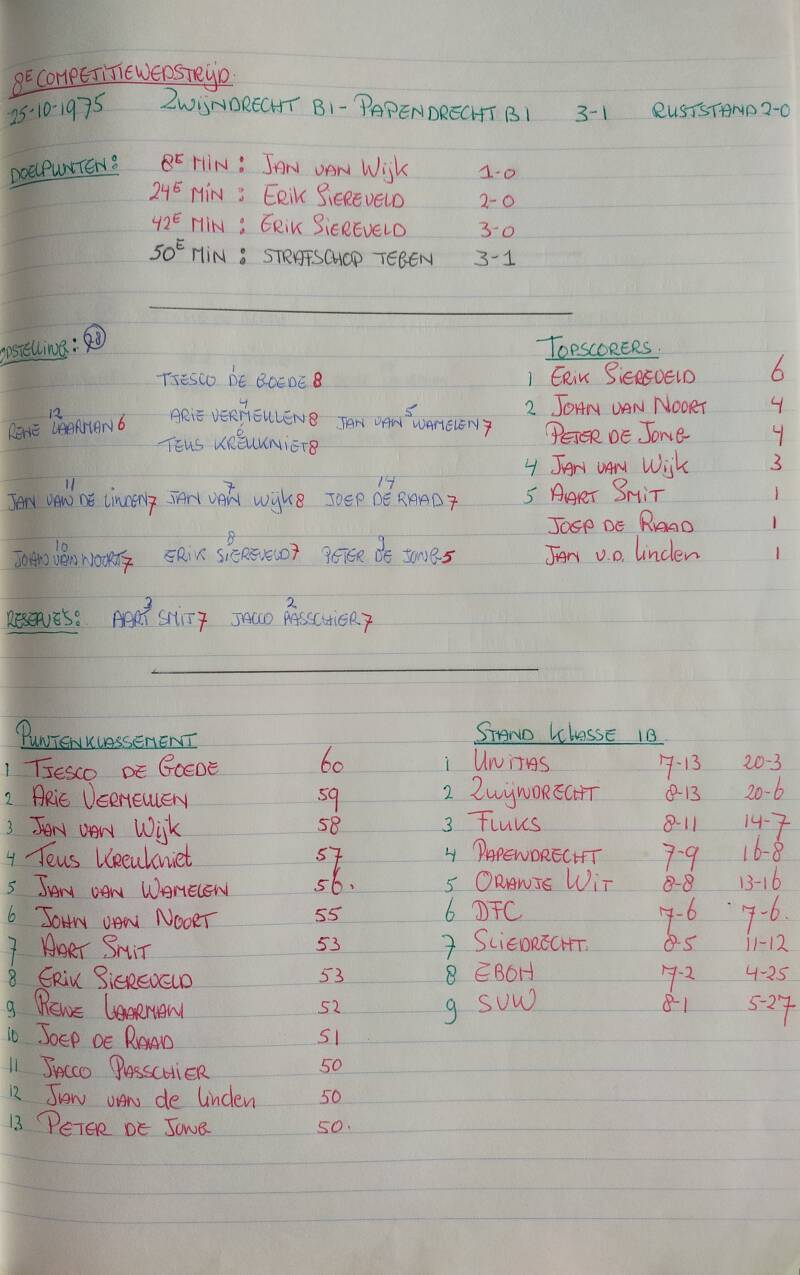 8E COMPETITIEWEDSTRIJD.
25-10-1975 ZWIJNDRECHT B1 - PAPENDRECHT B1 3-1 RUSTSTAND 2-0
DOELPUNTEN: 8E MIN: JAN VAN WIJK 1-0
24E MIN: ERIK SIEREVELD 2-0
42E MIN: ERIK SIEREVELD 3-0
50E MIN: STRAFSCHOP TEGEN 3-1
OPSTELLING: 28
1
TJESCO DE GOEDE 8
12 4 5
RENE LAARMAN 6 ARIE VERMEULEN 8 JAN VAN WAMELEN 7
6
TEUS KREUKNIET 8
11 7 14
JAN VAN DE LINDEN 7 JAN VAN WIJK 8 JOEP DE RAAD 7
10 8 9
JOHN VAN NOORT 7 ERIK SIEREVELD 7 PETER DE JONG 5
3 2
RESERVE'S: AART SMIT 7 JACCO PASSCHIER 7
TOPSCORERS.
1 ERIK SIEREVELD 6
2 JOHN VAN NOORT 4
PETER DE JONG 4
4 JAN VAN WIJK 3
5 AART SMIT 1
JOEP DE RAAD 1
JAN V.D. LINDEN 1
PUNTENKLASSEMENT
1 TJESCO DE GOEDE 60
2 ARIE VERMEULEN 59
3 JAN VAN WIJK 58
4 TEUS KREUKNIET 57
5 JAN VAN WAMELEN 56.
6 JOHN VAN NOORT 55
7 AART SMIT 53
8 ERIK SIEREVELD 53
9 RENE LAARMAN 52
10 JOEP DE RAAD 51
11 JACCO PASSCHIER 50
12 JAN VAN de LINDEN 50
13 PETER DE JONG 50.
STAND KLASSE 1B
1 UNITAS 7-13 20-3
2 ZWIJNDRECHT 8-13 20-6
3 FLUKS 8-11 14-7
4 PAPENDRECHT 7-9 16-8
5 ORANJE WIT 8-8 13-16
6 DFC 7-6 7-6.
7 SLIEDRECHT. 8-5 11-12
8 EBOH 7-2 4-25
9 SVW 8-1 5-27